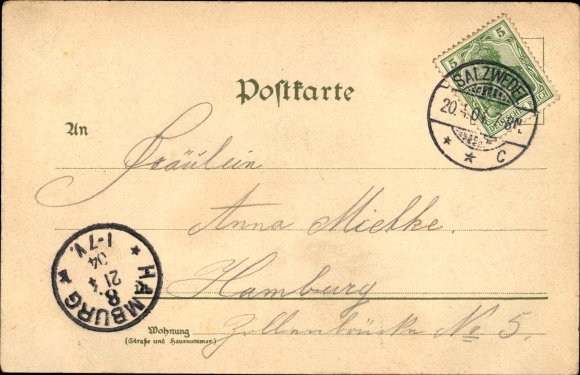 Postkarte
5 5
SALZWEDEL
20.4.04 8-9V.
* * C
An
Fräulein
Anna Mielke.
Hamburg
Wohnung
(Straße und Hausnummer)
Zollenbrücke No 5.
HAMBURG
* 8. *
21 4
04
1-7 V.